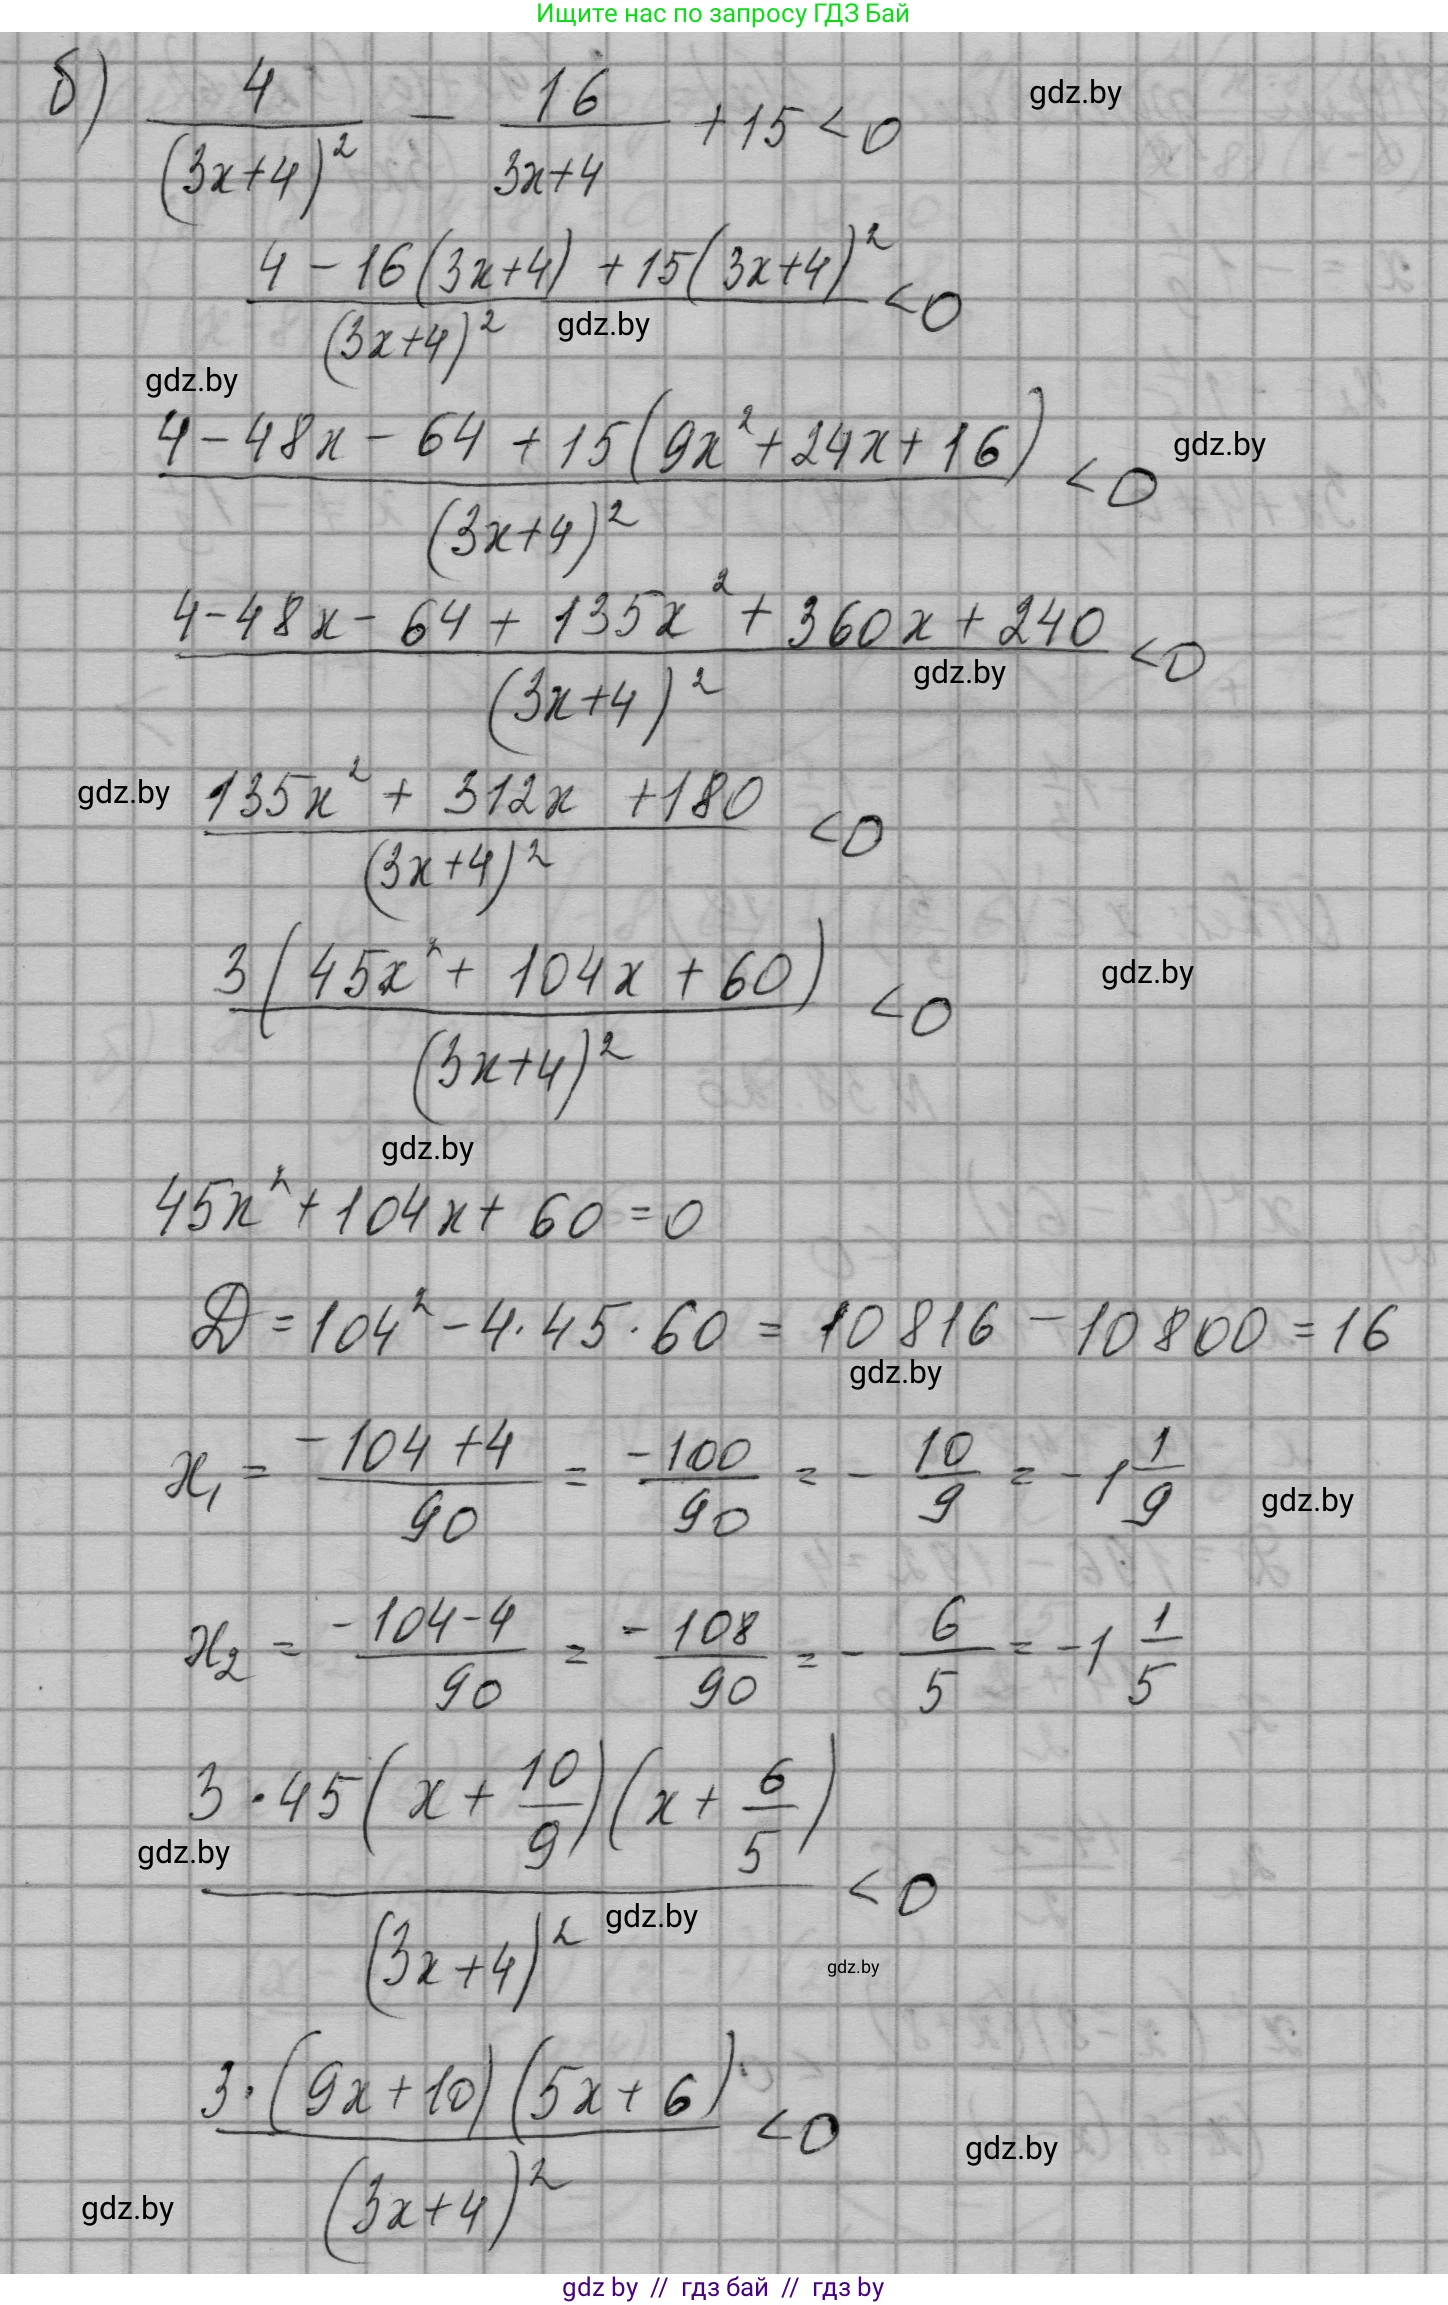 Ищите нас по запросу ГДЗ Бай
б) 4/(3x+4)² − 16/(3x+4) + 15 < 0
gdz.by
(4 − 16(3x+4) + 15(3x+4)²)/(3x+4)² < 0
gdz.by
gdz.by
(4 − 48x − 64 + 15(9x² + 24x + 16))/(3x+4)² < 0
gdz.by
(4 − 48x − 64 + 135x² + 360x + 240)/(3x+4)² < 0
gdz.by
gdz.by
(135x² + 312x + 180)/(3x+4)² < 0
3(45x² + 104x + 60)/(3x+4)² < 0
gdz.by
gdz.by
45x² + 104x + 60 = 0
D = 104² − 4·45·60 = 10816 − 10800 = 16
gdz.by
x₁ = (−104+4)/90 = −100/90 = −10/9 = −1 1/9
gdz.by
x₂ = (−104−4)/90 = −108/90 = −6/5 = −1 1/5
3·45(x + 10/9)(x + 6/5)/(3x+4)² < 0
gdz.by
gdz.by
gdz.by
3·(9x+10)(5x+6)/(3x+4)² < 0
gdz.by
gdz.by
gdz by // гдз бай // гдз by